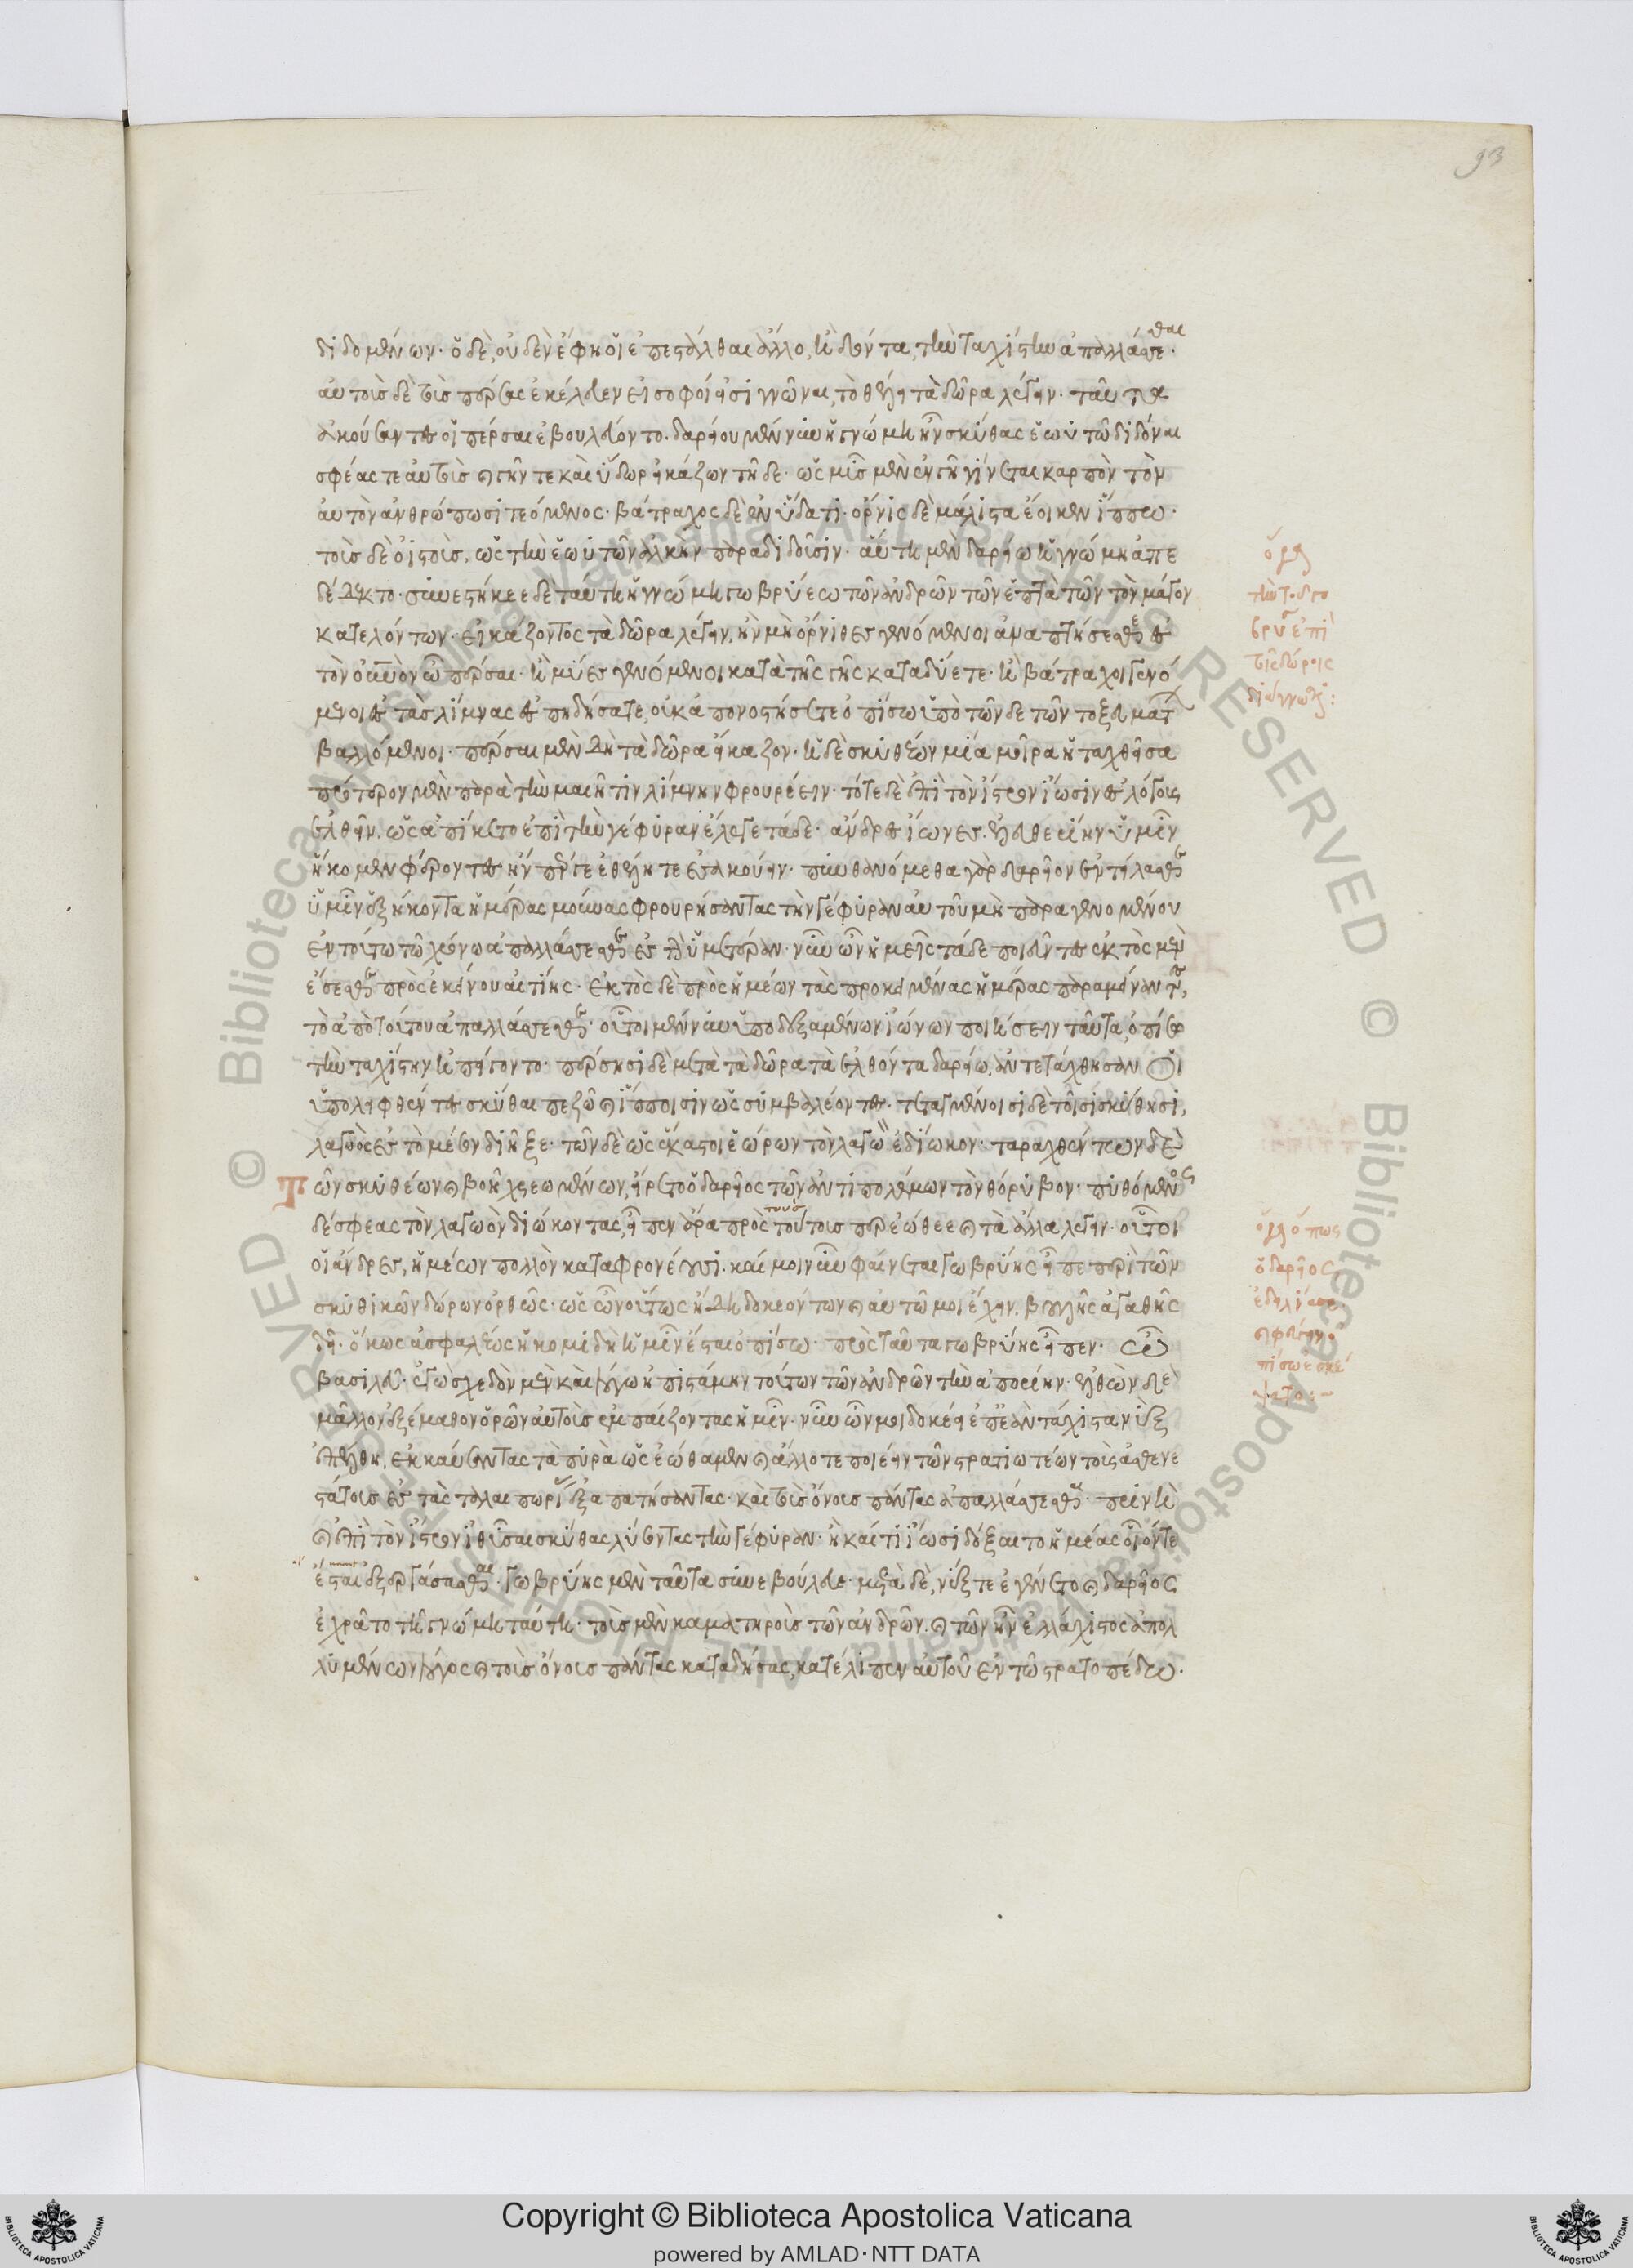 93
διδομένων· ὁ δὲ, οὐδὲν ἔφη οἱ ἐπεστάλθαι ἄλλο, ἢ δόντα, τὴν ταχίστην ἀπαλλάσσεσθαι·
αὐτοὺς δὲ τοὺς πέρσας ἐκέλευεν εἰ σοφοί εἰσι γνῶναι, τὸ θέλει τὰ δῶρα λέγειν· ταῦτα
ἀκούσαντες οἱ πέρσαι ἐβουλεύοντο· δαρείου μέν νυν ἡ γνώμη ἦν σκύθας ἑωυτῶ διδόναι
σφέας τε αὐτοὺς καὶ γῆν τε καὶ ὕδωρ εἰκάζων τῆδε· ὡς μῦς μὲν ἐν γῆ γίνεται καρπὸν τὸν
αὐτὸν ἀνθρώπω σιτεόμενος· βάτραχος δὲ ἐν ὕδατι· ὄρνις δὲ μάλιστα ἔοικεν ἵππω·
τοὺς δὲ οἰστοὺς, ὡς τὴν ἑωυτῶν ἀλκὴν παραδιδοῦσιν· αὕτη μὲν δαρείω ἡ γνώμη ἀπε
δέδεκτο· συνεστήκεε δὲ ταύτη ἡ γνώμη γωβρύεω τῶν ἀνδρῶν τῶν ἑπτὰ τῶν τὸν μάγον
κατελόντων· εἰκάζοντος τὰ δῶρα λέγειν, ἢν μὴ ὄρνιθες γενόμενοι ἀναπτήσεσθε ἐς
τὸν οὐρανὸν ὦ πέρσαι· ἢ μύες γενόμενοι κατὰ τῆς γῆς καταδύετε· ἢ βάτραχοι γενό
μενοι ἐς τὰς λίμνας ἐσπηδήσατε, οὐκ ἀπονοστήσετε ὀπίσω ὑπὸ τῶνδε τῶν τοξευμάτων
βαλλόμενοι· πέρσαι μὲν δὴ τὰ δῶρα εἴκαζον· ἡ δὲ σκυθέων μία μοῖρα ἡ ταχθεῖσα
πρότερον μὲν παρὰ τὴν μαιῆτιν λίμνην φρουρέειν· τότε δὲ ἐπὶ τὸν ἴστρον ἴωσιν ἐς λόγους
ἐλθεῖν, ὡς ἀπίκετο ἐπὶ τὴν γέφυραν ἔλεγε τάδε· ἄνδρες ἴωνες, ἐλευθερίην ὑμῖν
ἥκομεν φέροντες ἤν πέρ γε ἐθέλητε ἐσακούειν· πυνθανόμεθα γὰρ δαρεῖον ἐντείλασθαι
ὑμῖν ἑξήκοντα ἡμέρας μούνας φρουρήσαντας τὴν γέφυραν αὐτοῦ μὴ παραγενομένου
ἐν τούτω τῶ χρόνω ἀπαλλάσσεσθαι ἐς τὴν ὑμετέραν· νῦν ὦν ἡμεῖς τάδε ποιεῦντες ἐκτὸς μὲν
ἔσεσθε πρὸς ἐκείνου αἰτίης· ἐκτὸς δὲ πρὸς ἡμέων τὰς προκειμένας ἡμέρας παραμείναντες,
τὸ ἀπὸ τούτου ἀπαλλάσσεσθε· οὗτοι μέν νυν ὑποδεξαμένων ἰώνων ποιήσειν ταῦτα, ὀπίσω
τὴν ταχίστην ἠπείγοντο· πέρσησι δὲ μετὰ τὰ δῶρα τὰ ἐλθόντα δαρείω, ἀντετάχθησαν οἱ
ὑπολειφθέντες σκύθαι πεζῶ καὶ ἵπποισιν ὡς συμβαλέοντες· τεταγμένοισι δὲ τοῖσι σκύθησι,
λαγωὸς ἐς τὸ μέσον διῆξε· τῶν δὲ ὡς ἕκαστοι ἑώρων τὸν λαγὼν ἐδίωκον· ταραχθέντων δὲ
τῶν σκυθέων καὶ βοῆ χρεωμένων, εἴρετο ὁ δαρεῖος τῶν ἀντιπολέμων τὸν θόρυβον· πυθόμενος
δέ σφεας τὸν λαγωὸν διώκοντας, εἶπεν ἄρα πρὸς τούτοις τούσπερ ἐώθεε καὶ τὰ ἄλλα λέγειν· οὗτοι
οἱ ἄνδρες, ἡμέων πολλὸν καταφρονέουσι· καί μοι νῦν φαίνεται γωβρύης εἶπε περὶ τῶν
σκυθικῶν δώρων ὀρθῶς· ὡς ὦν οὕτως ἤδη δοκεόντων καὶ αὐτῶ μοι ἔχειν, βουλῆς ἀγαθῆς
δεῖ· ὅκως ἀσφαλέως ἡ κομιδὴ ἡμῖν ἔσται ὀπίσω· πρὸς ταῦτα γωβρύης εἶπεν· ὦ
βασιλεῦ· ἐγὼ σχεδὸν μὲν καὶ λόγω ἠπιστάμην τούτων τῶν ἀνδρῶν τὴν ἀπορίην· ἐλθὼν δὲ
μᾶλλον ἐξέμαθον ὁρῶν αὐτοὺς ἐμπαίζοντας ἡμῖν· νῦν ὦν μοι δοκέει ἐπεὰν τάχιστα νὺξ
ἐπέλθη, ἐκκαύσαντας τὰ πυρὰ ὡς ἐώθαμεν καὶ ἄλλοτε ποιέειν τῶν στρατιωτέων τοὺς ἀσθενε
στάτους ἐς τὰς ταλαιπωρίας ἐξαπατήσαντας· καὶ τοὺς ὄνους πάντας ἀπαλλάσσεσθαι· πρὶν ἢ
καὶ ἐπὶ τὸν ἴστρον ἰθῦσαι σκύθας λύσοντας τὴν γέφυραν· ἢ καί τι ἴωσι δόξαι τὸ ἡμέας οἷόν τε
ἔσται ἐξεργάσασθαι· γωβρύης μὲν ταῦτα συνεβούλευε· μετὰ δὲ, νύξ τε ἐγένετο καὶ δαρεῖος
ἐχρᾶτο τῆ γνώμη ταύτη· τοὺς μὲν καματηροὺς τῶν ἀνδρῶν, καὶ τῶν ἦν ἐλάχιστος ἀπολ
λυμένων λόγος καὶ τοὺς ὄνους πάντας καταδήσας, κατέλιπεν αὐτοῦ ἐν τῶ στρατοπέδω·
ὅρα
τὴν τοῦ γω
βρύου ἐπὶ
τοῖς δώροις
διάγνωσιν:
ὅρα ὅπως
ὁ δαρεῖος
ἐδειλίασε